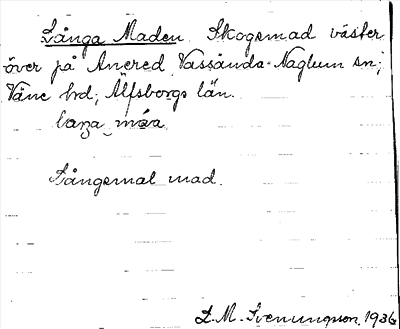 Långa Maden Skogsmad väster
över på Anered Vassända-Naglum sn;
Väne hd; Älfsborgs län.
laŋa máa
Långsmal mad.
L.M. Svenungson 1936